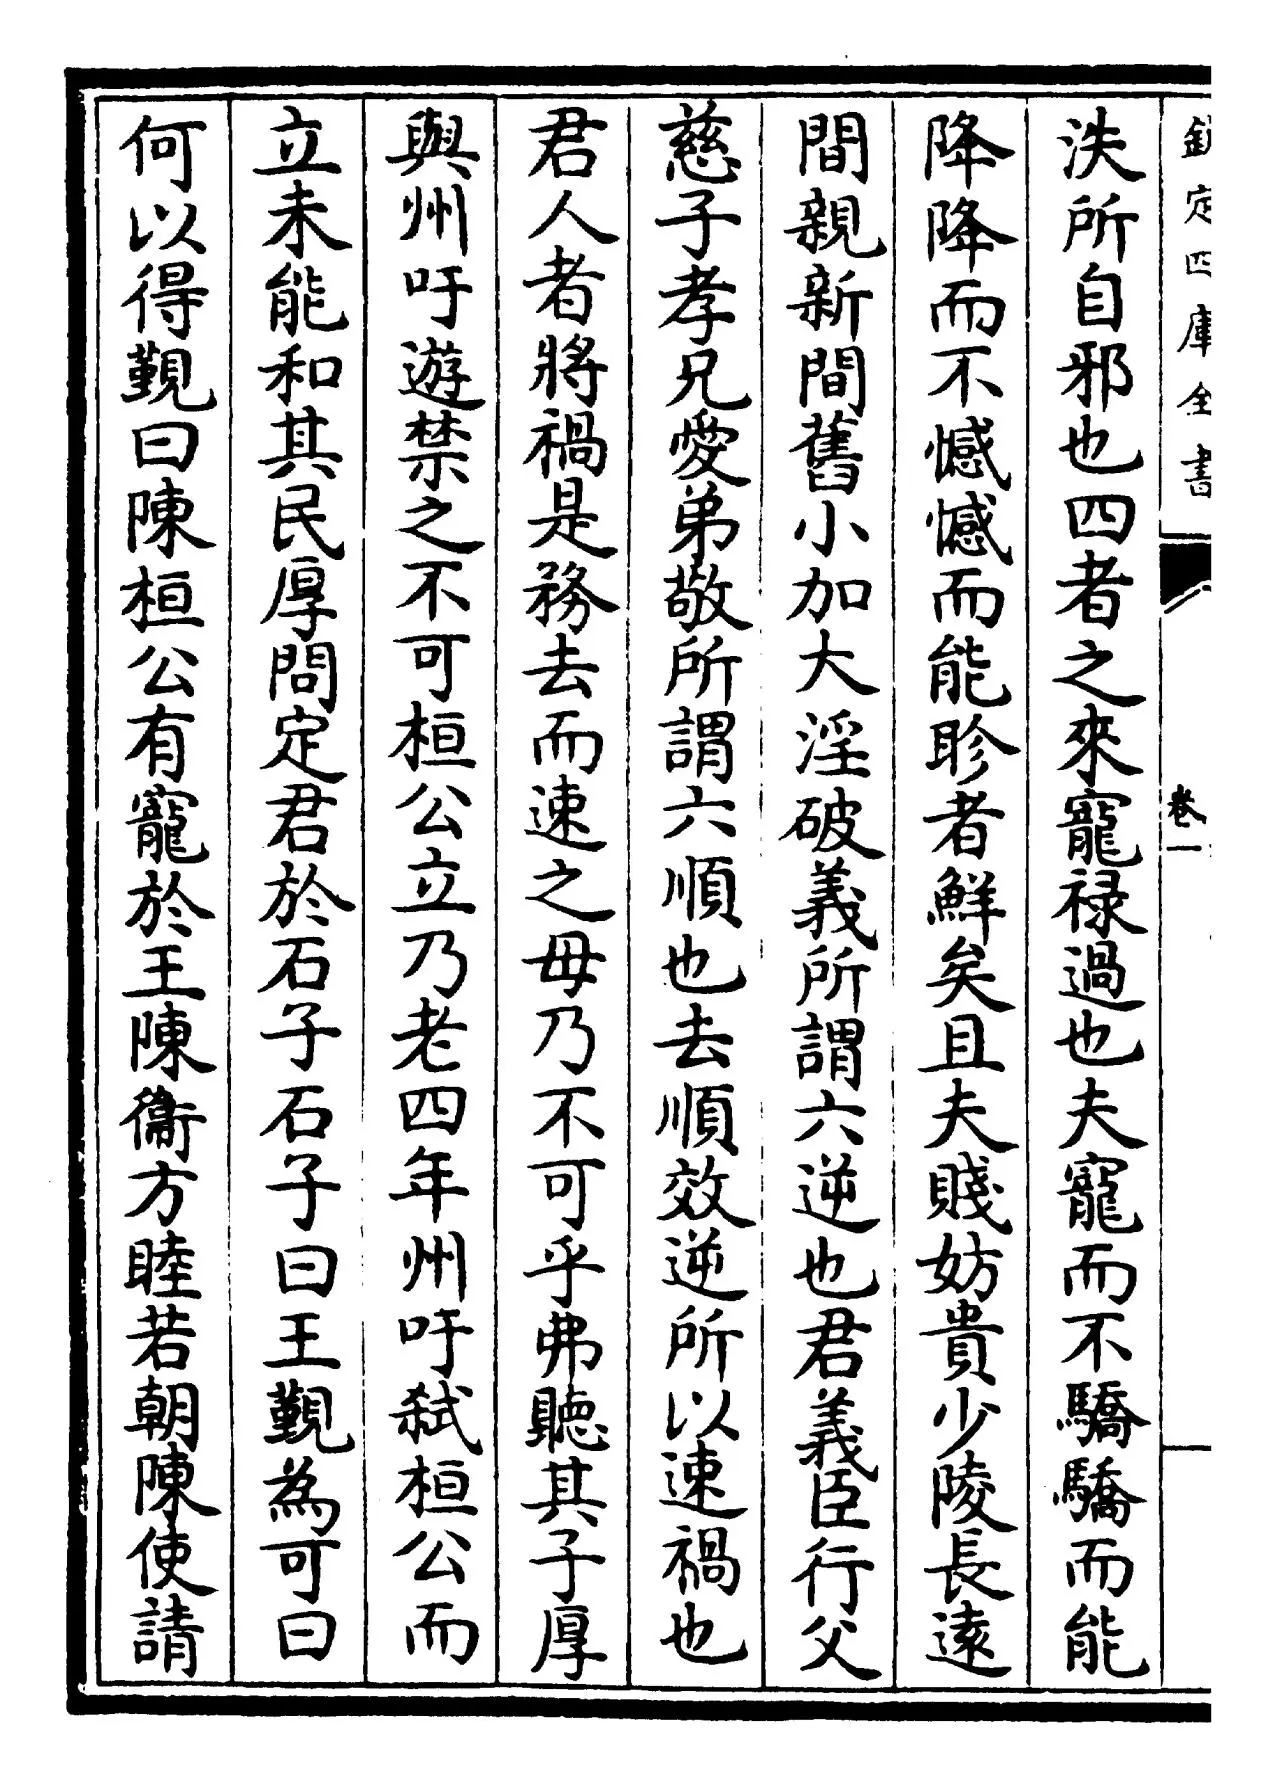 欽定四庫全書
卷一
泆所自邪也四者之來寵祿過也夫寵而不驕驕而能
降降而不憾憾而能眕者鮮矣且夫賤妨貴少陵長遠
間親新間舊小加大淫破義所謂六逆也君義臣行父
慈子孝兄愛弟敬所謂六順也去順效逆所以速禍也
君人者將禍是務去而速之毋乃不可乎弗聽其子厚
與州吁遊禁之不可桓公立乃老四年州吁弑桓公而
立未能和其民厚問定君於石子石子曰王覲為可曰
何以得覲曰陳桓公有寵於王陳衞方睦若朝陳使請